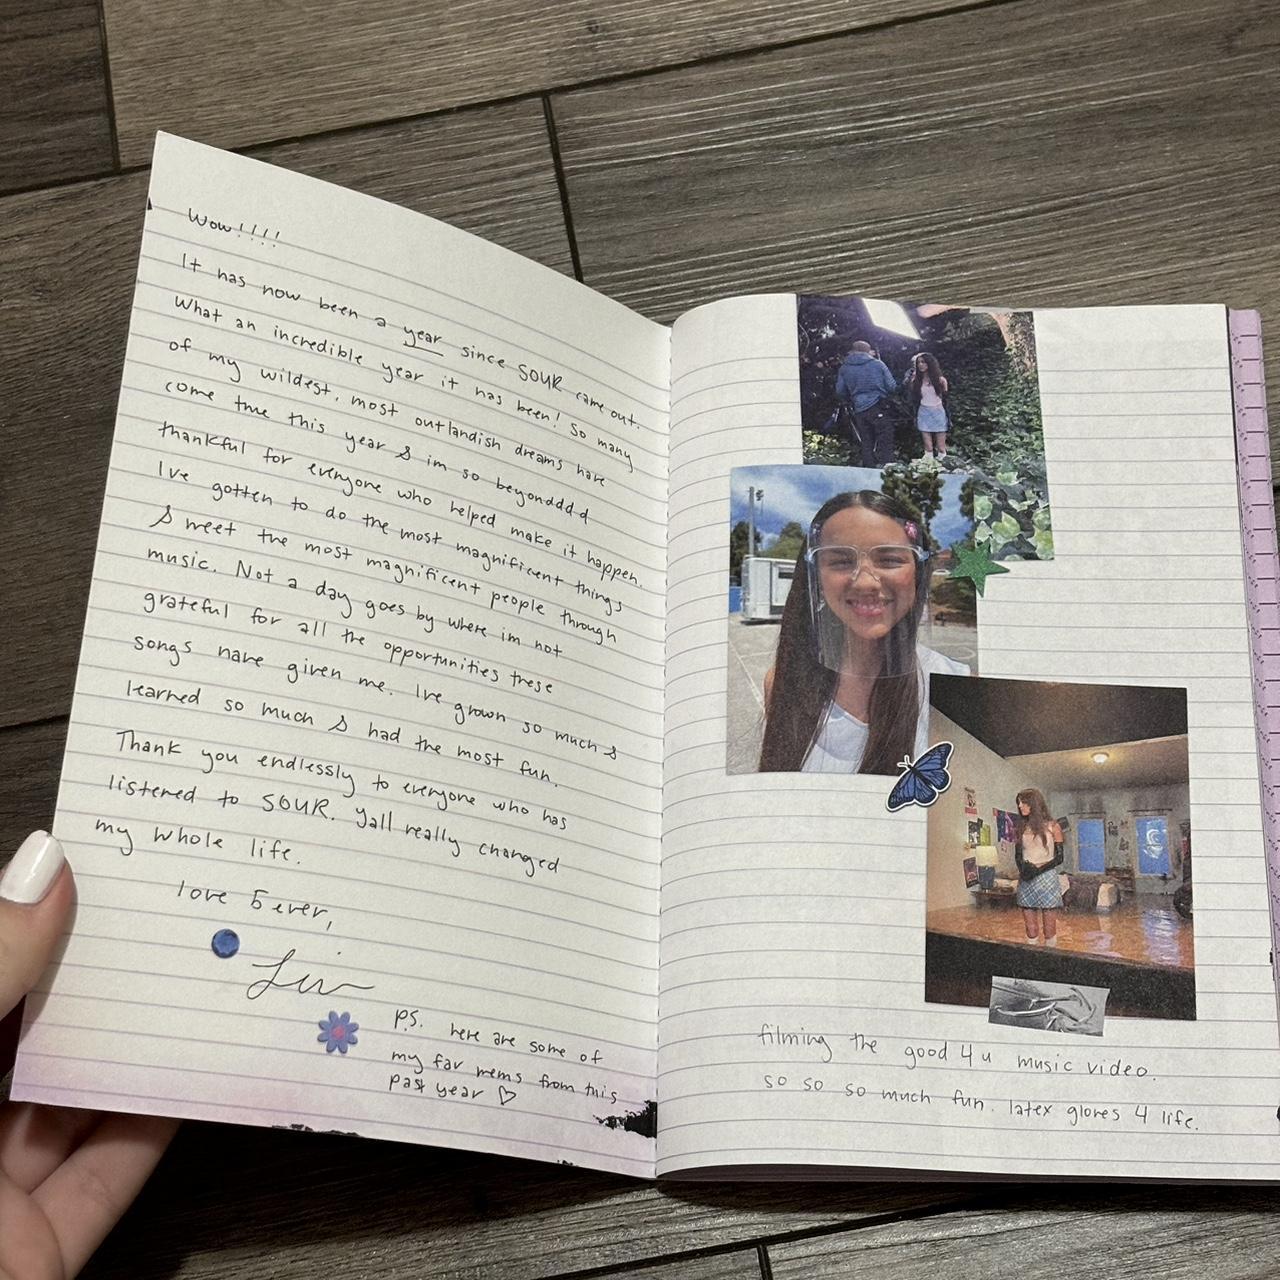 Wow!!!!
It has now been a year since SOUR came out.
What an incredible year it has been! So many
of my wildest, most outlandish dreams have
come true this year & im so beyonddd d
thankful for everyone who helped make it happen.
I've gotten to do the most magnificent things
& meet the most magnificent people through
music. Not a day goes by where im not
grateful for all the opportunities these
songs have given me. Ive grown so much &
learned so much & had the most fun.
Thank you endlessly to everyone who has
listened to SOUR. yall really changed
my whole life.
love 5 ever,
Liv
P.S. here are some of
my fav mems from this
past year ♡
filming the good 4 u music video.
so so so much fun. latex gloves 4 life.